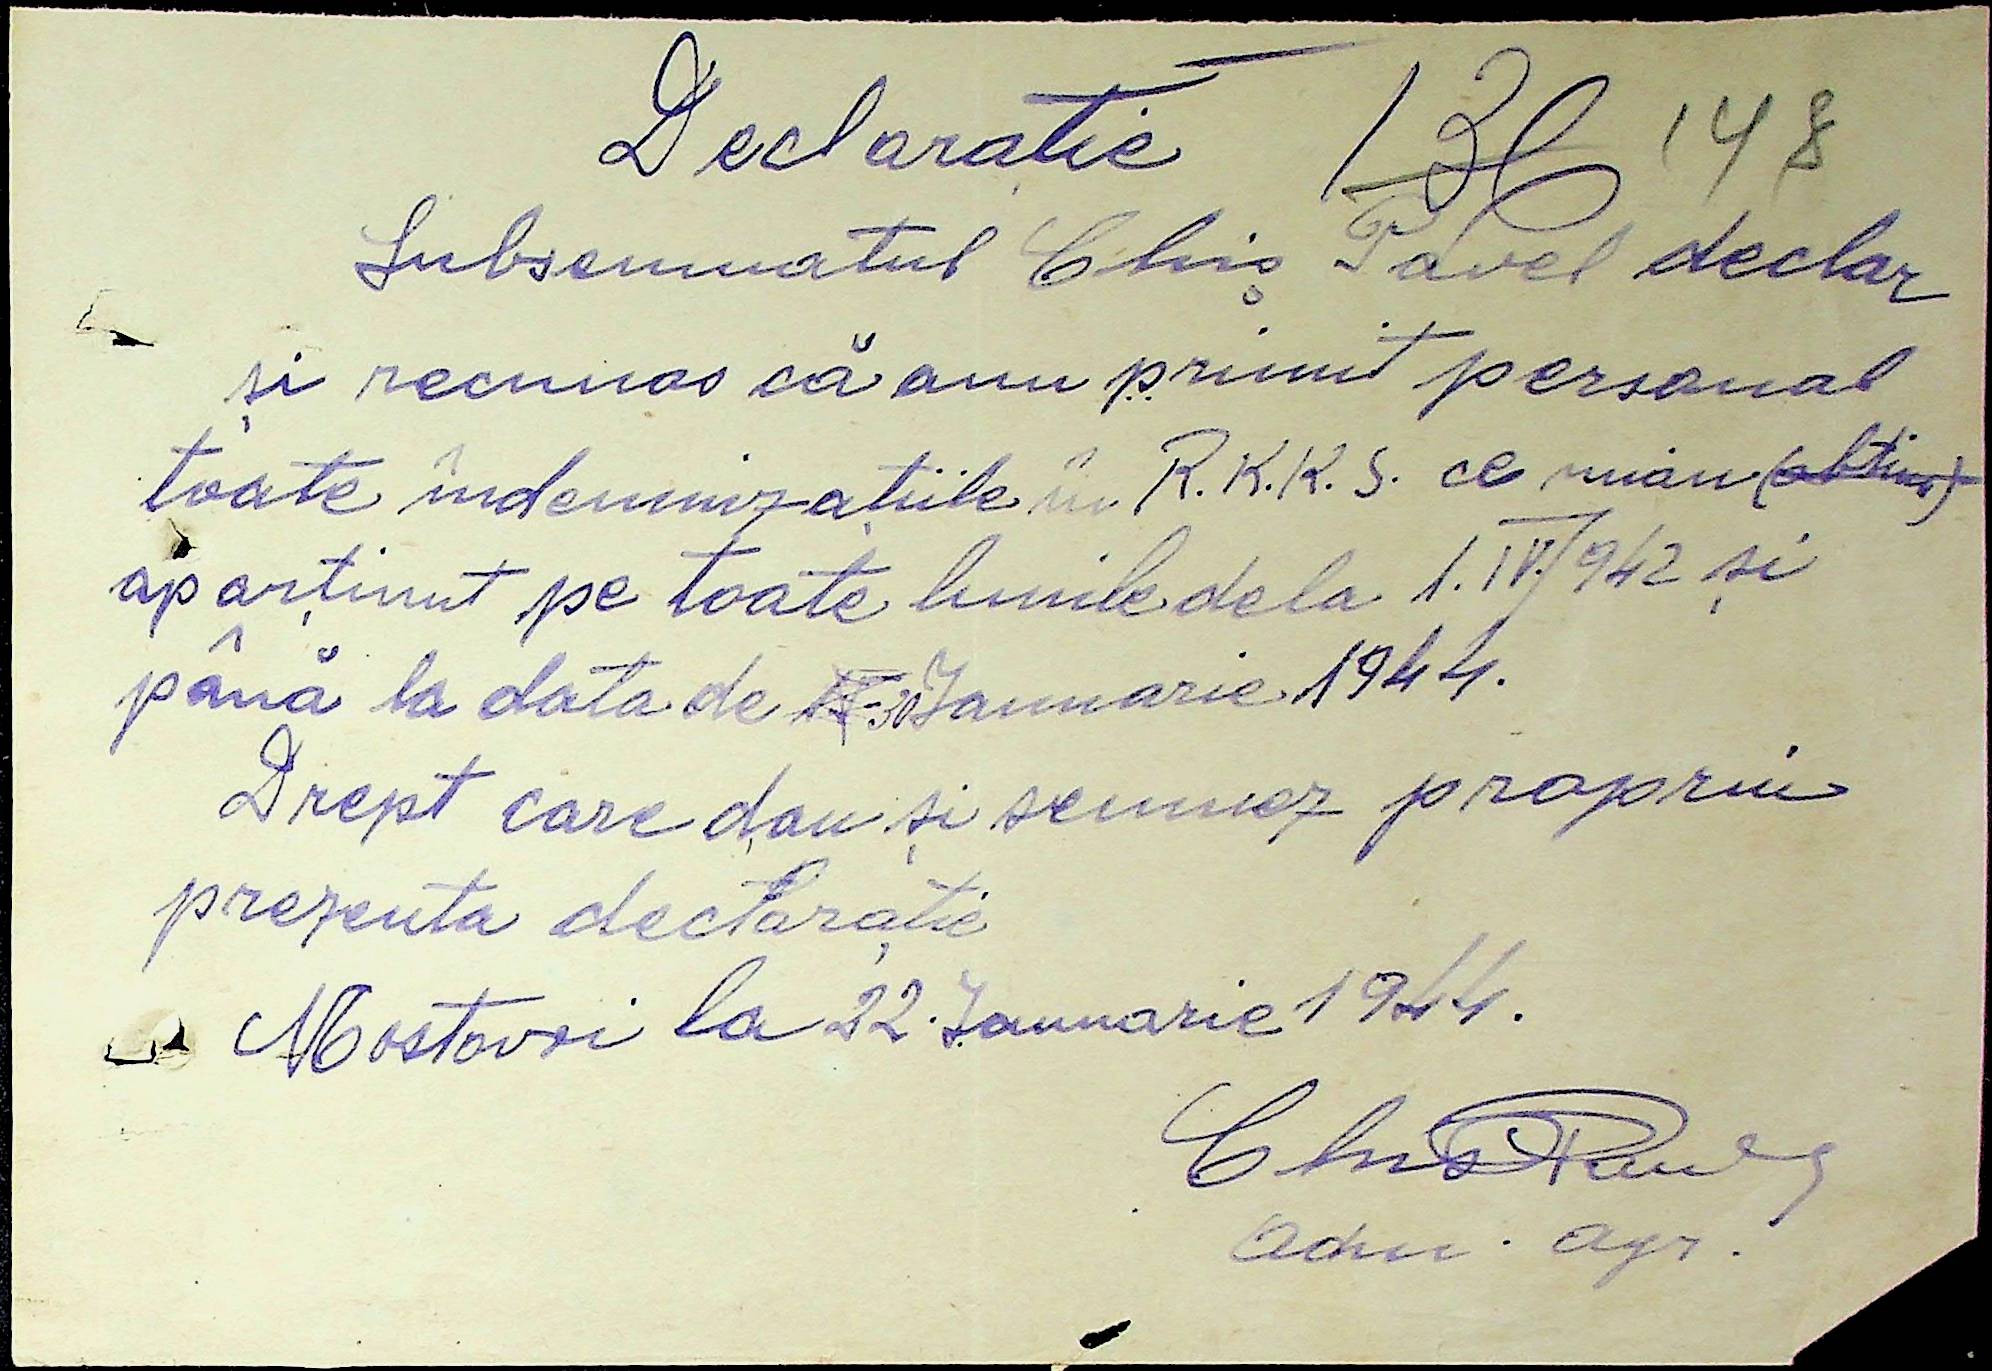 Declarație 136 148
Subsemnatul Chiș Pavel declar
și recunosc că am primit personal
toate indemnizațiile în R.K.K.S. ce mi-au (obținut)
aparținut pe toate lunile dela 1.IV/942 și
până la data de 30 Ianuarie 1944.
Drept care dau și semnez propriu
prezenta declarație
Mostovoi la 22. Ianuarie 1944.
Chiș Pavel
Adm. agr.